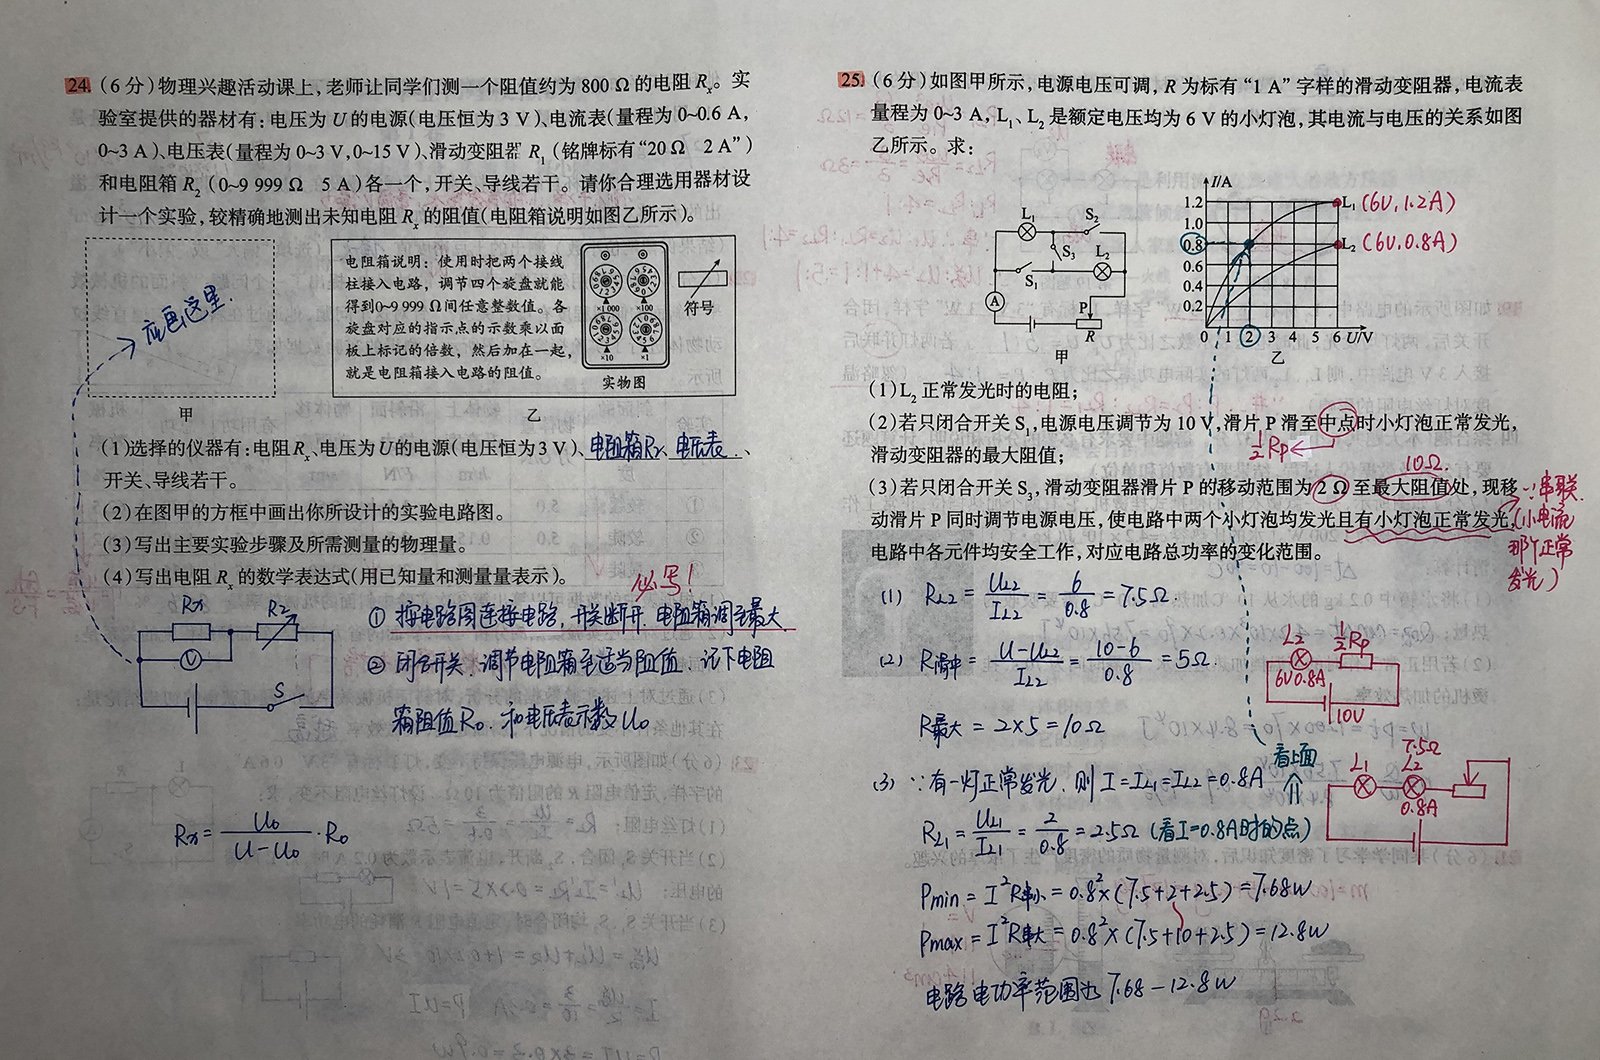 24. (6分)物理兴趣活动课上,老师让同学们测一个阻值约为 800 Ω 的电阻 Rx。实
验室提供的器材有:电压为 U 的电源(电压恒为 3 V)、电流表(量程为 0~0.6 A,
0~3 A)、电压表(量程为 0~3 V,0~15 V)、滑动变阻器 R1 (铭牌标有“20 Ω 2 A”)
和电阻箱 R2 (0~9 999 Ω 5 A)各一个,开关、导线若干。请你合理选用器材设
计一个实验,较精确地测出未知电阻 Rx 的阻值(电阻箱说明如图乙所示)。
应画这里.
甲
电阻箱说明:使用时把两个接线
柱接入电路,调节四个旋盘就能
得到0~9 999 Ω间任意整数值。各
旋盘对应的指示点的示数乘以面
板上标记的倍数,然后加在一起,
就是电阻箱接入电路的阻值。
×1 000 ×100
×10 ×1
实物图
符号
乙
(1)选择的仪器有:电阻 Rx、电压为 U 的电源(电压恒为 3 V)、电阻箱R2、电压表、
开关、导线若干。
(2)在图甲的方框中画出你所设计的实验电路图。
(3)写出主要实验步骤及所需测量的物理量。
(4)写出电阻 Rx 的数学表达式(用已知量和测量量表示)。
必写!
Rx R2
V
S
① 按电路图连接电路,开关断开,电阻箱调至最大
② 闭合开关、调节电阻箱至适当阻值、记下电阻
箱阻值R0、和电压表示数U0
Rx = U0/(U-U0) · R0
25. (6分)如图甲所示,电源电压可调,R 为标有“1 A”字样的滑动变阻器,电流表
量程为 0~3 A,L1、L2 是额定电压均为 6 V 的小灯泡,其电流与电压的关系如图
乙所示。求:
L1 S2
S3 L2
S1
A P
R
甲
I/A
1.2
1.0
0.8
0.6
0.4
0.2
0 1 2 3 4 5 6 U/V
L1 (6V,1.2A)
L2 (6V,0.8A)
乙
(1)L2 正常发光时的电阻;
(2)若只闭合开关 S1,电源电压调节为 10 V,滑片 P 滑至中点时小灯泡正常发光,
½RP
滑动变阻器的最大阻值;
10Ω.
(3)若只闭合开关 S3,滑动变阻器滑片 P 的移动范围为 2 Ω 至最大阻值处,现移
动滑片 P 同时调节电源电压,使电路中两个小灯泡均发光且有小灯泡正常发光,
电路中各元件均安全工作,对应电路总功率的变化范围。
∵串联
(小电流
那个正常
发光)
(1) RL2 = UL2/IL2 = 6/0.8 = 7.5Ω
(2) R滑中 = (U-UL2)/IL2 = (10-6)/0.8 = 5Ω.
R最大 = 2×5 = 10Ω
L2 ½RP
6V0.8A
10V
(3) ∵有一灯正常发光、则 I=IL1=IL2=0.8A
看上面
RL1 = UL1/IL1 = 2/0.8 = 2.5Ω (看I=0.8A时的点)
7.5Ω
L1 L2
0.8A
Pmin = I²R串小 = 0.8²×(7.5+2+2.5) = 7.68W
Pmax = I²R串大 = 0.8²×(7.5+10+2.5) = 12.8W
电路电功率范围为 7.68-12.8W